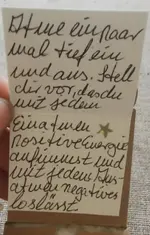 Atme ein paar
mal tief ein
und aus. Stell
dir vor, dass du
mit jedem
Einatmen
positive Energie
aufnimmst und
mit jedem Aus-
atmen negatives
loslässt